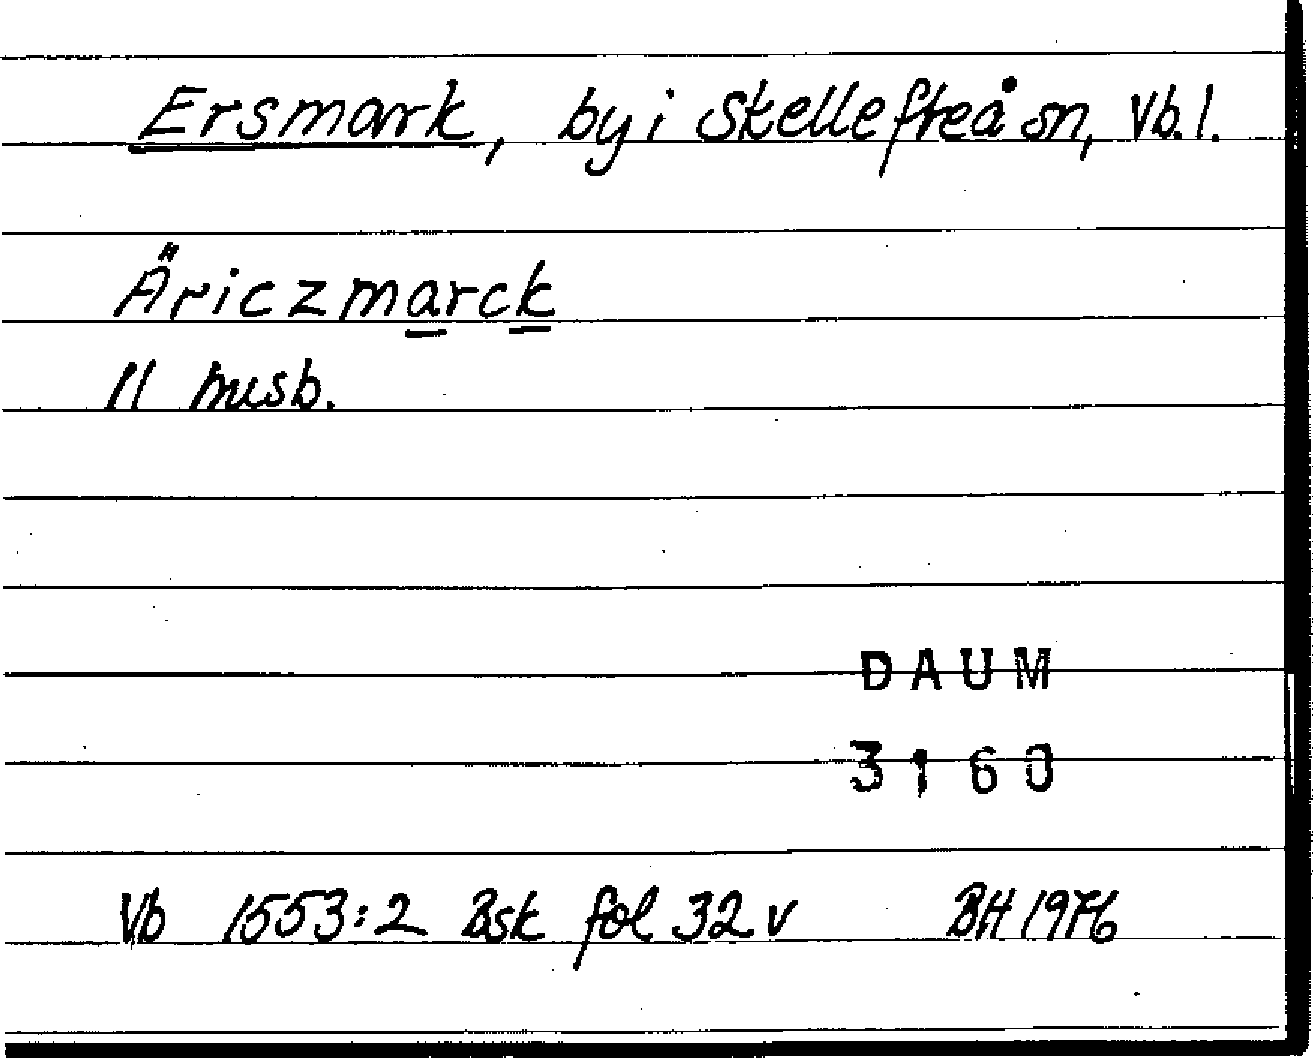 Ersmark, by i Skellefteå sn, Vb. l.
Äriczmarck
11 husb.
DAUM
3160
Vb 1553:2 Bsk fol 32 v BH 1976